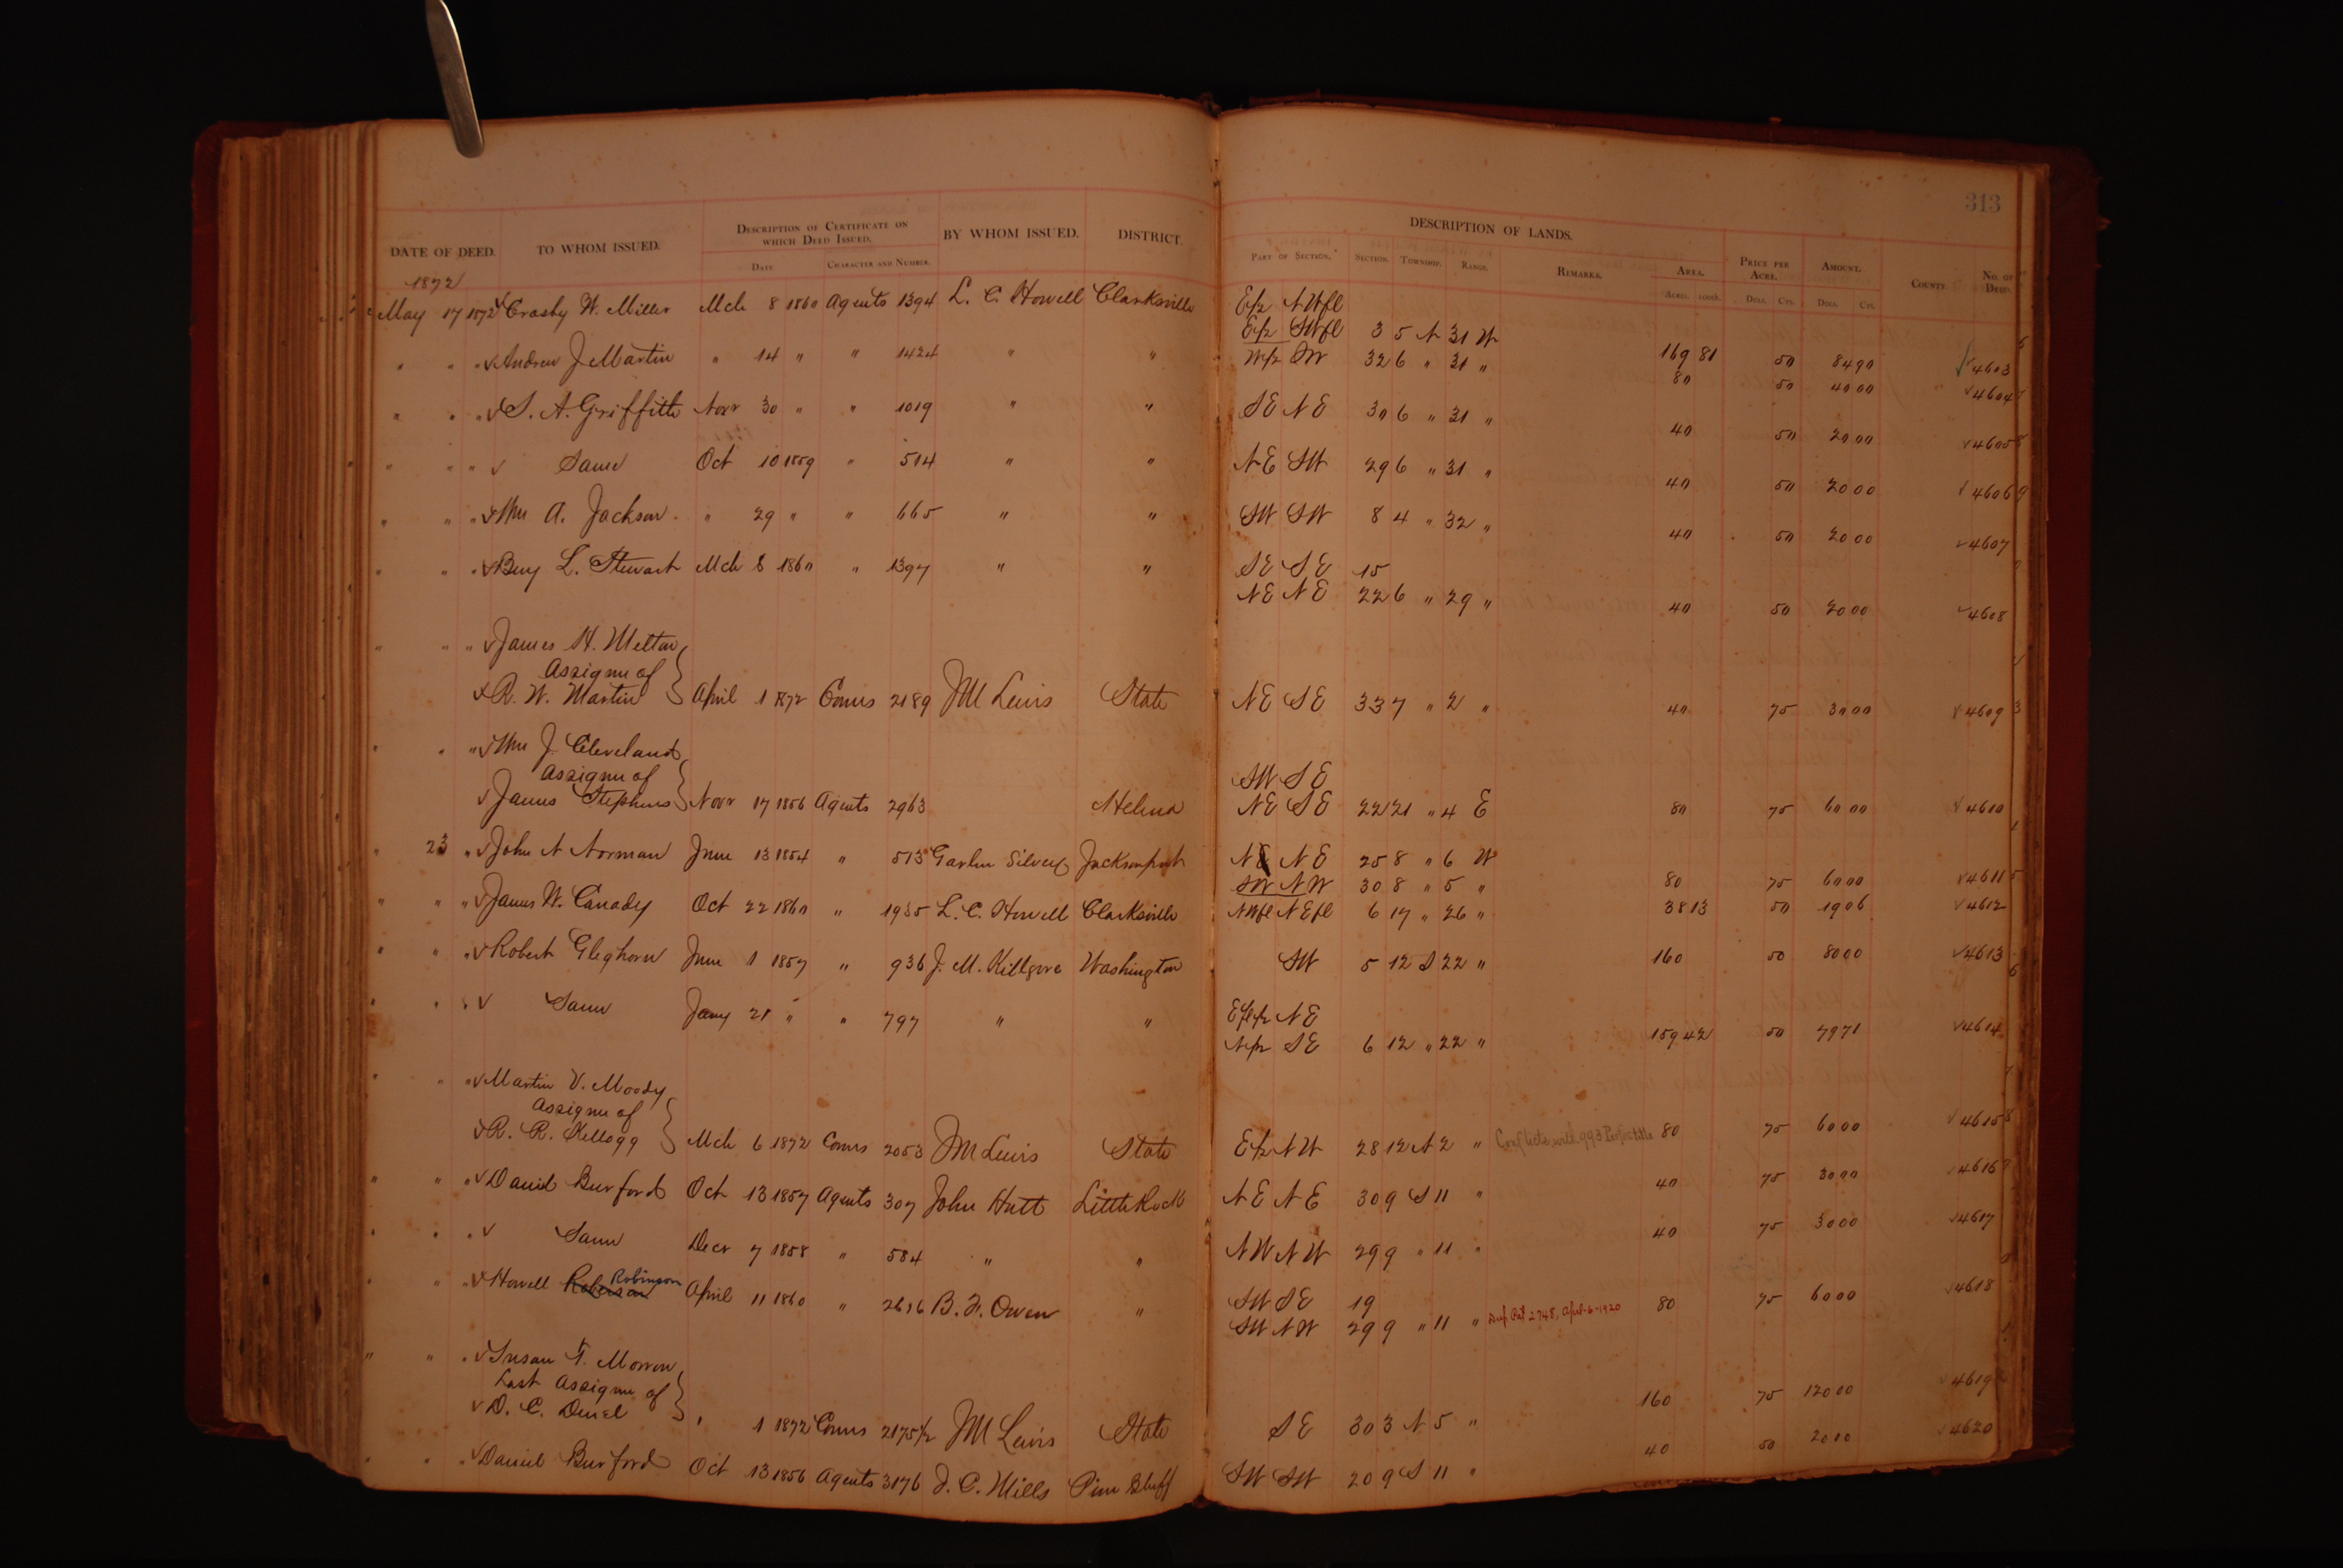 313
DATE OF DEED. TO WHOM ISSUED. DESCRIPTION OF CERTIFICATE ON WHICH DEED ISSUED. BY WHOM ISSUED. DISTRICT. DESCRIPTION OF LANDS. PRICE PER ACRE. AMOUNT. COUNTY NO. OF DEED.
DATE CHARACTER AND NUMBER. PART OF SECTION. SECTION. TOWNSHIP. RANGE. REMARKS. AREA.
ACRES. 100th. DOLS. CTS. DOLS. CTS.
1872
May 17 1872 Crosby W. Miller Mch 8 1860 Agents 1394 L. C. Howell Clarksville E½ NWfl
E½ SWfl 3 5 N 31 W 169 81 50 84 90 4603
" " " Andrew J Martin " 14 " " 1424 " " W½ SW 32 6 " 31 " 80 50 40 00 4604
" " " S. A. Griffith Novr 30 " " 1019 " " SE NE 30 6 " 31 " 40 50 20 00 4605
" " " Same Oct 10 1859 " 514 " " NE SW 29 6 " 31 " 40 50 20 00 4606
" " " Wm A. Jackson " 29 " " 665 " " SW SW 8 4 " 32 " 40 50 20 00 4607
" " " Benj L. Stewart Mch 8 1860 " 1397 " " SE SE 15
NE NE 22 6 " 29 " 40 50 20 00 4608
" " " James H. Melton
Assignee of
R. W. Martin April 1 1872 Comrs 2189 JM Lewis State NE SE 33 7 " 2 " 40 75 30 00 4609
" " " Wm J. Cleveland
Assignee of SW SE
James Stephens Novr 17 1856 Agents 2963 Helena NE SE 22 21 " 4 E 80 75 60 00 4610
" 23 " John N Norman June 13 1854 " 513 Jacksonport NE NE 25 8 " 6 W
SW NW 30 8 " 5 " 80 75 60 00 4611
" " " James W. Canady Oct 22 1860 " 1955 L. C. Howell Clarksville NWfl NEfl 6 17 " 26 " 38 13 50 19 06 4612
" " " Robert Gleghorn June 1 1857 " 936 J. M. Killgore Washington SW 5 12 S 22 " 160 50 80 00 4613
" " " Same Jany 21 " " 797 " " Efl½ NE
N½ SE 6 12 " 22 " 159 42 50 79 71 4614
" " " Martin V. Moody
Assignee of
R. R. Kellogg Mch 6 1872 Comrs 2053 JM Lewis State E½ NW 28 12 N 2 " Conflicts with 993 80 75 60 00 4615
" " " David Burford Oct 13 1857 Agents 307 John Hutt Little Rock NE NE 30 9 S 11 " 40 75 30 00 4616
" " " Same Decr 7 1858 " 584 " " NW NW 29 9 " 11 " 40 75 30 00 4617
" " " Howell Roberson Robinson April 11 1860 " 2616 B. F. Owen " SW SE 19
SW NW 29 9 " 11 " Dup Pat 2748, Apr-6-1920 80 75 60 00 4618
" " " Susan F. Morrow
Last Assignee of
D. C. " 1 1872 Comrs 2175½ JM Lewis State SE 30 3 N 5 " 160 75 120 00 4619
" " " Daniel Burford Oct 13 1856 Agents 3176 J. C. Mills Pine Bluff SW SW 20 9 S 11 " 40 50 20 00 4620